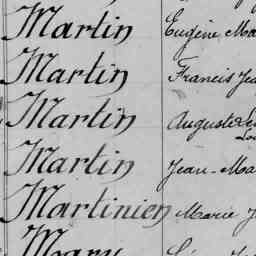 Martin Eugène Ma
Martin Francis Jea
Martin Auguste
Martin Jean-Ma
Martinien Marie J
Mary